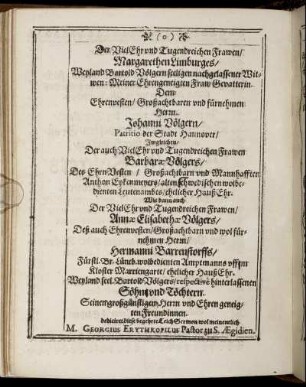 (o)
Der Viel Ehr vnd Tugendreichen Frawen/
Margarethen Limburges/
Weyland Bartold Völgern seeligen nachgelassener Wit-
wen: Meiner Ehrengeneigten Fraw Gevatterin.
Dem
Ehrenvesten/ Großachtbaren vnd fürnehmen
Herrn.
Johanni Völgern/
Patritio der Stadt Hannover/
Imgleichen/
Der auch Viel Ehr vnd Tugendreichen Frawen
Barbaræ Völgers/
Des EhrnVesten / Großachtbarn vnd Mannhafften
ehelicher Hauß Ehr.
Wie dann auch
Der Viel Ehr vnd Tugendreichen Frawen/
Annæ Elisabethæ Völgers/
Deß auch Ehrnvesten/ Großachtbarn vnd wol für-
nehmen Herrn/
Hermanni Barrenstorffs/
Fürstl. Br. Lüneb. wolbedienten Amptmanns vffm
Kloster Mariengarte/ ehelicher Hauß Ehr.
Weyland seel. Bartold Völgers/ respectivè hinterlassenen
Söhn vnd Töchtern.
Seinen großgünstigen Herrn vnd Ehren geneig-
ten Freundinnen.
M. GEORGIUS ERYTHROPILUS Pastor zu S. Ægidien.